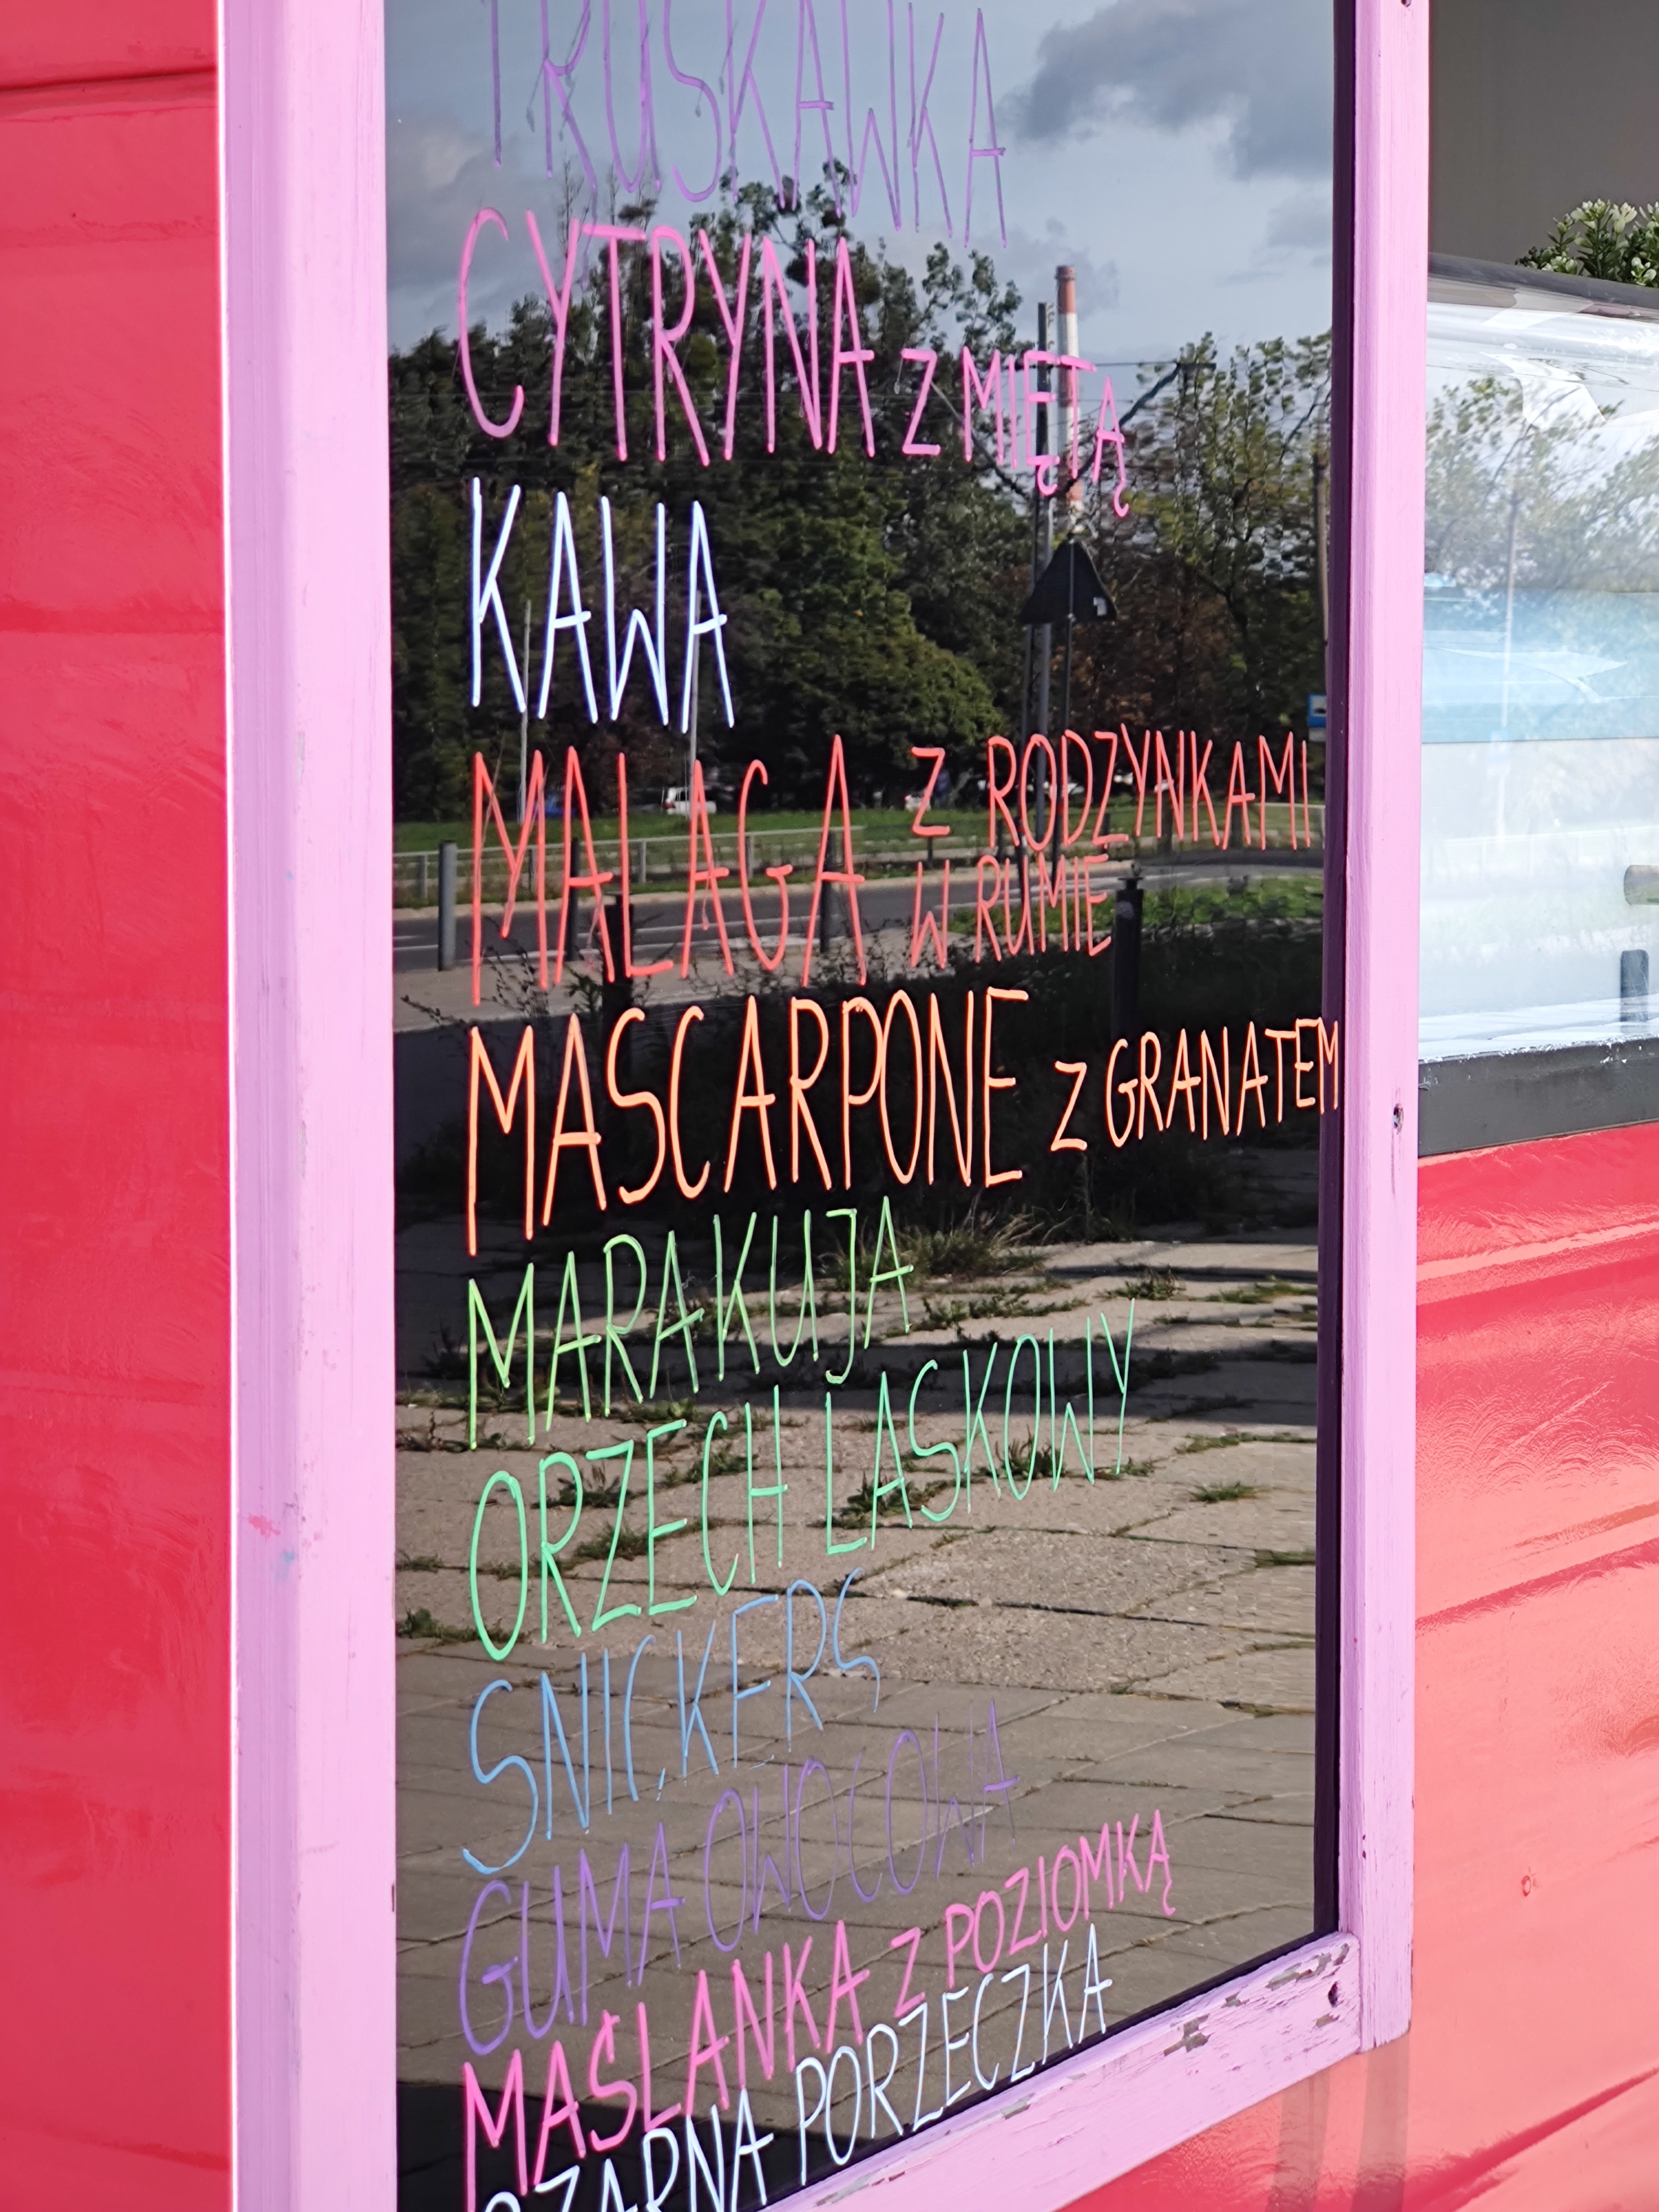 TRUSKAWKA
CYTRYNA z MIĘTĄ
KAWA
MALAGA z RODZYNKAMI
W RUMIE
MASCARPONE z GRANATEM
MARAKUJA
ORZECH LASKOWY
SNICKERS
GUMA OWOCOWA
MAŚLANKA z POZIOMKĄ
CZARNA PORZECZKA